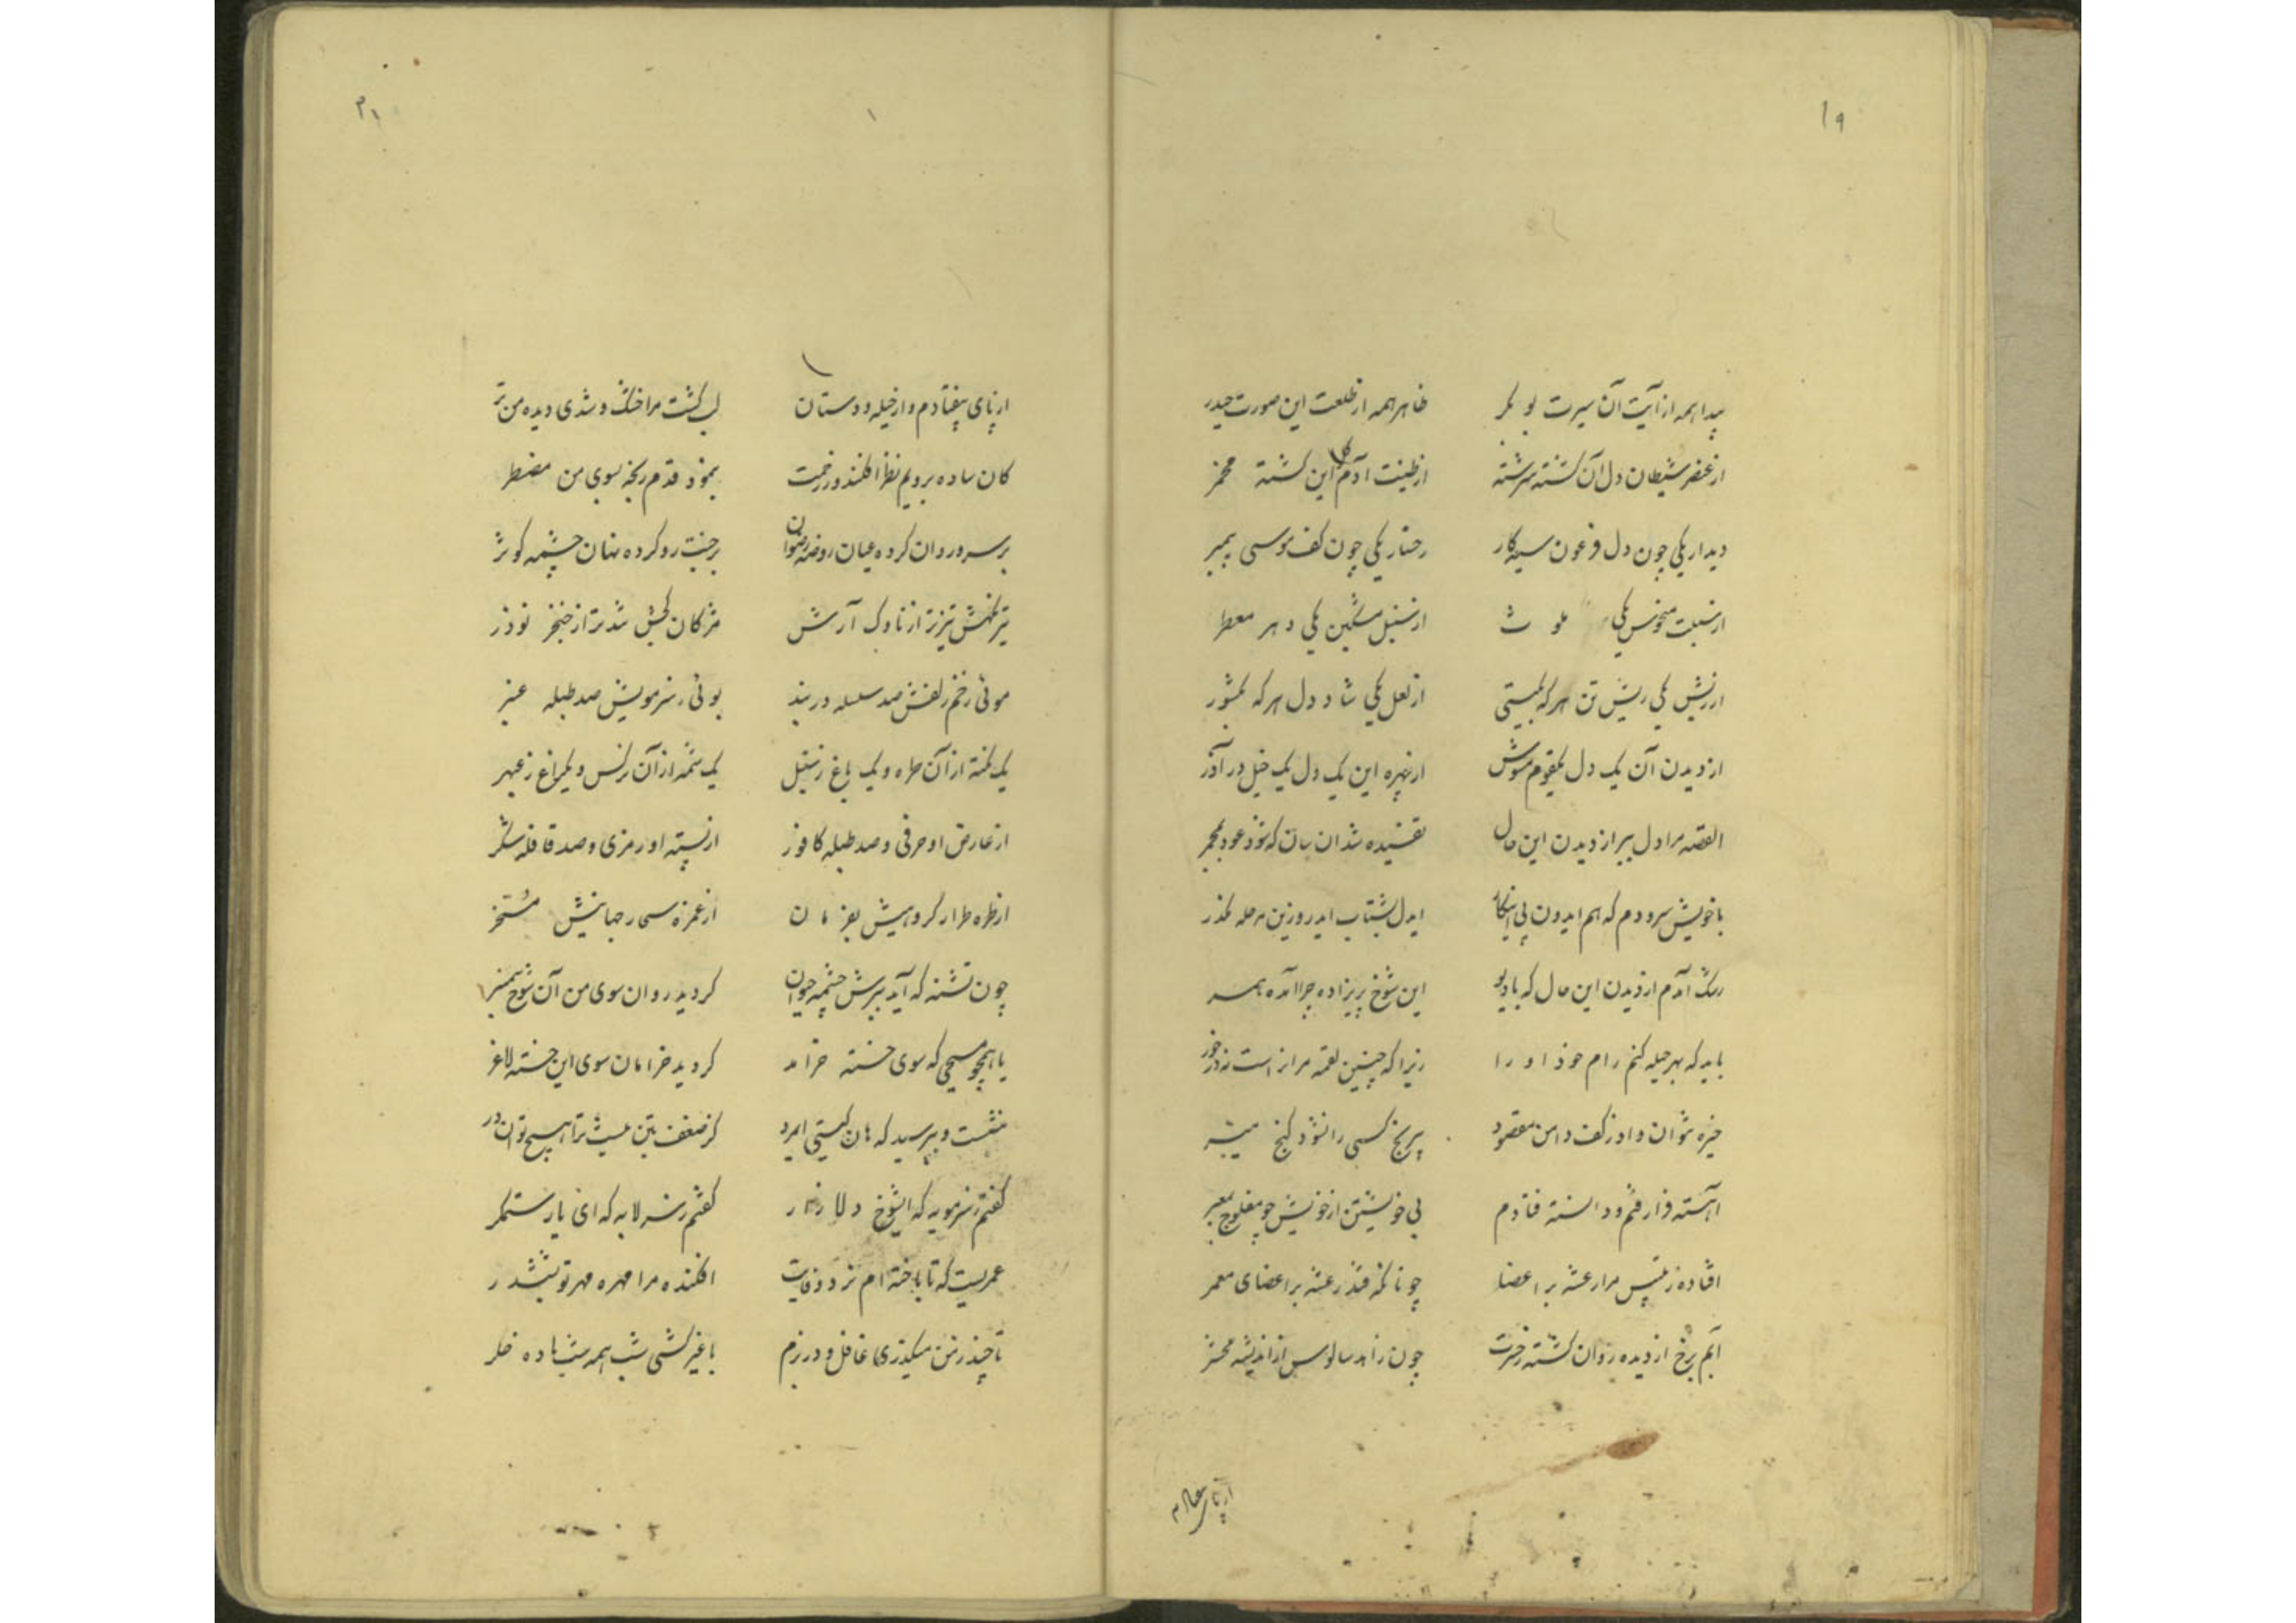 ۱۹
پیدا همه از آیت آن سیرت بوبکر ظاهر همه از طلعت این صورت حیدر
از عنصر شیطان دل آن گشته سرشته از طینت آدم گل این گشته مخمر
دیدار یکی چون دل فرعون سیه کار رخسار یکی چون کف موسی پیمبر
از سبلت منحوس یکی ملوث از سنبل مشکین یکی دهر معطر
از ریش یکی ریش تن هر که بگیتی از لعل یکی شاد دل هر که بکشور
از دیدن آن یک دل یکقوم مشوش از بهره این یک دل یک خیل در آذر
القصه مرا دل ببر از دیدن این حال تفتیده شد انسان که شود عود بمجمر
با خویش سرودم که هم ایدون پی اینکار ایدل بشتاب ایدر وزین مرحله مگذر
رشک آمدم از دیدن این حال که با دیو این شوخ پریزاده چرا آمده همسر
باید که بهر حیله کنم رام خود او را زیرا که چنین لقمه مر او راست نه در خور
خیره نتوان داد ز کف دامن مقصود بیرنج کسی را نشود گنج میسر
آهسته فرا رفتم و دانسته فتادم بی خویشتن از خویش چو مفلوج معبر
افتاده ز تلبیس مرا رعشه بر اعضا چونانکه فتد رعشه بر اعضای معمر
آبم برخ از دیده روان گشته ز حسرت چون زاهد سالوس از اندیشه محشر
از پای
۲۱
از پای بیفتادم و از حیله و دستان لب گشت مرا خشک و شدی دیده من تر
کان ساده برویم نظر افکند و ز رحمت بنمود قدم رنجه بسوی من مضطر
بر سرو روان کرده عیان روضه رضوان بر جنت رو کرده نهان چشمه کوثر
تیر نگهش تیزتر از ناوک آرش مژگان کجش تندتر از خنجر نوذر
موئی ز خم زلفش صد سلسله در بند بوئی ز سر مویش صد طبله عنبر
یک نکته از آن طره و یک باغ ز سنبل یک شمه از آن نرگس و یکراغ ز عبهر
از عارض او حرفی و صد طبله کافور از پسته او رمزی و صد قافله شکر
از طره طرار گروهیش بفرمان از غمزه سحار جهانیش مسخر
چون تشنه که آید ببرش چشمه حیوان گردید روان سوی من آن شوخ سمنبر
یا همچو مسیحی که سوی خسته خرامد گردید خرامان سوی این خسته لاغر
بنشست و بپرسید که هان کیستی ایمرد کز ضعف بتن نیست ترا هیچ توان در
گفتم ز سر مویه که ایشوخ دلازار گفتم ز سر لابه که ای یار ستمگر
عمریست که تا باخته ام نرد وفایت افکنده مرا مهره مهر تو بششدر
تا چند ز من میگذری غافل و در بزم با غیر کشی شب همه شب باده خلر